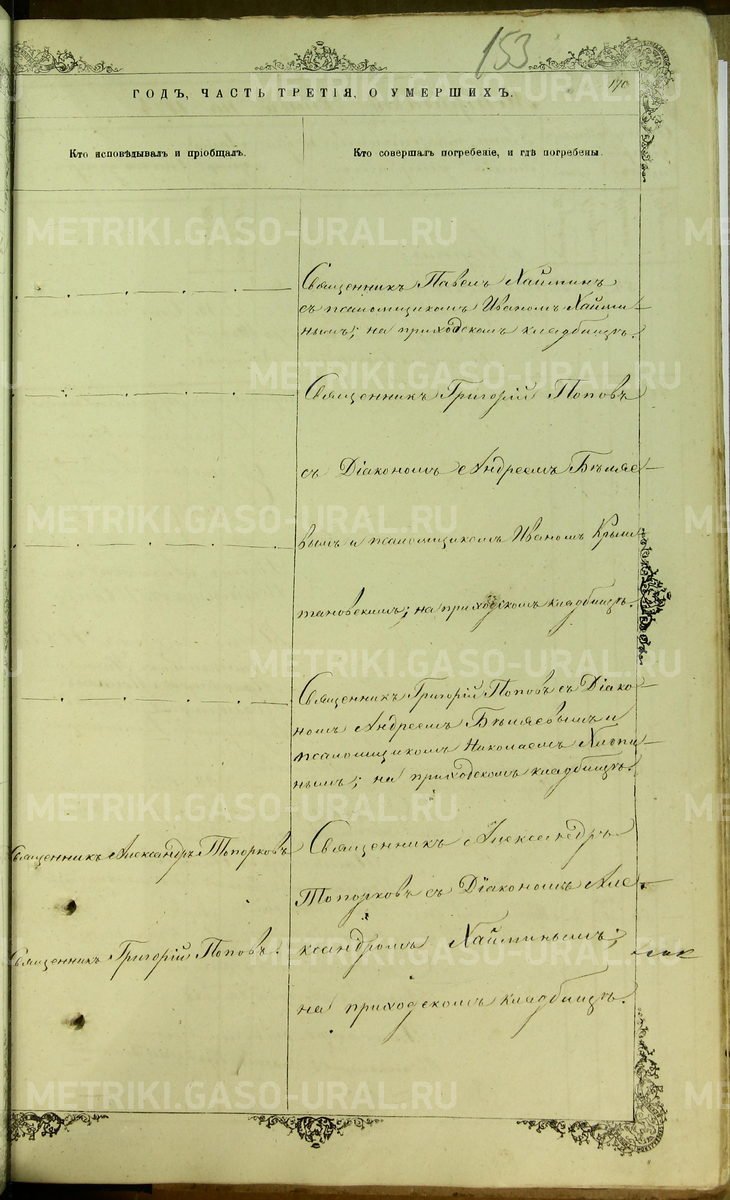 153
170
ГОДЪ, ЧАСТЬ ТРЕТІЯ, О УМЕРШИХЪ.
Кто исповѣдывалъ и пріобщалъ.
Кто совершалъ погребеніе, и гдѣ погребены.
Священникъ Павелъ Хаймин
съ псаломщикомъ Иваномъ Хайми-
нымъ; на приходскомъ кладбищѣ.
Священникъ Григорій Поповъ
съ Діакономъ Андреемъ Бѣляе-
вымъ и псаломщикомъ Иваномъ
на приходскомъ кладбищѣ.
Священникъ Григорій Поповъ съ Діако-
номъ Андреемъ Бѣляевымъ и
псаломщикомъ Николаемъ
нымъ; на приходскомъ кладбищѣ.
Священникъ Александръ Топорковъ
Священникъ Александръ
Топорковъ съ Діакономъ Але-
Священникъ Григорій Поповъ.
ксандромъ Хайминымъ;
на приходскомъ кладбищѣ.
METRIKI.GASO-URAL.RU